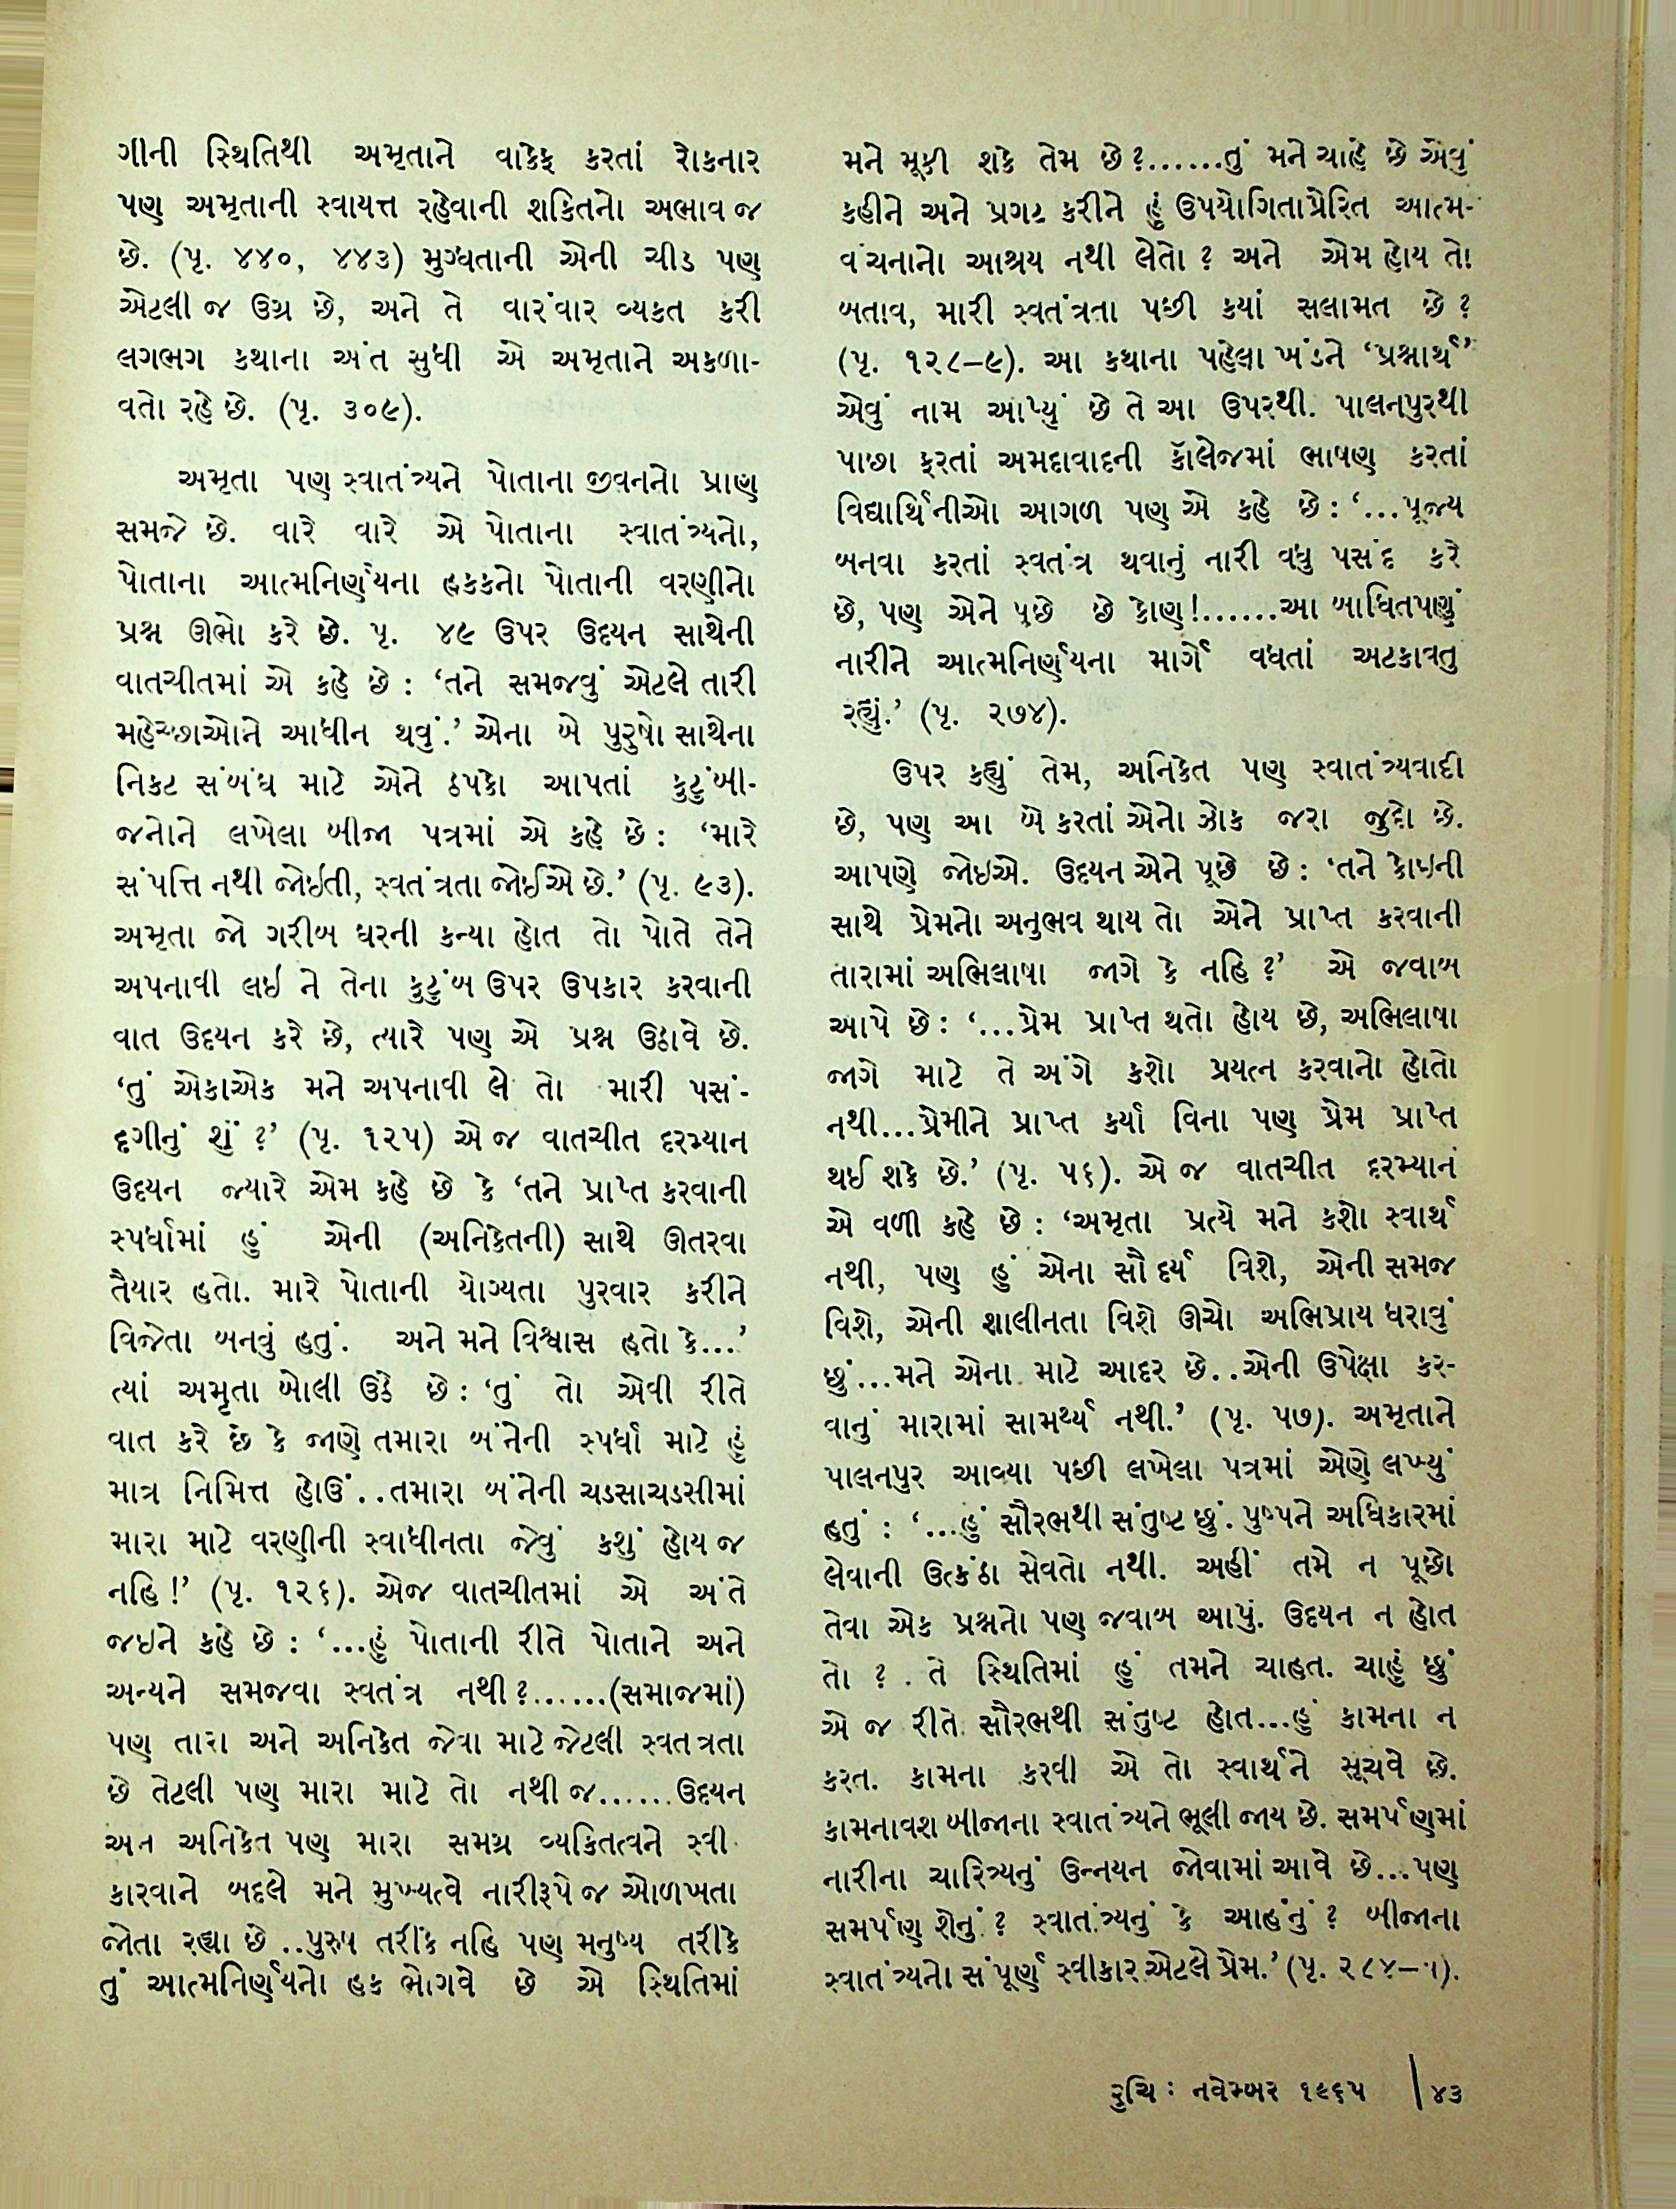 ગીની સ્થિતિથી અમૃતાને વાકેફ કરતાં રોકનાર
પણ અમૃતાની સ્વાયત્ત રહેવાની શકિતનો અભાવ જ
છે. (પૃ. ૪૪૦, ૪૪૩) મુગ્ધતાની એની ચીડ પણ
એટલી જ ઉગ્ર છે, અને તે વારંવાર વ્યકત કરી
લગભગ કથાના અંત સુધી એ અમૃતાને અકળા-
વતો રહે છે. (પૃ. ૩૦૯).
અમૃતા પણ સ્વાતંત્ર્યને પોતાના જીવનનો પ્રાણ
સમજે છે. વારે વારે એ પોતાના સ્વાતંત્ર્યનો,
પોતાના આત્મનિર્ણયના હકકનો પોતાની વરણીનો
પ્રશ્ન ઊભો કરે છે. પૃ. ૪૯ ઉપર ઉદયન સાથેની
વાતચીતમાં એ કહે છે : ‘તને સમજવું એટલે તારી
મહેચ્છાઓને આધીન થવું.’ એના બે પુરુષો સાથેના
નિકટ સંબંધ માટે એને ઠપકો આપતાં કુટુંબી-
જનોને લખેલા બીજા પત્રમાં એ કહે છે : ‘મારે
સંપત્તિ નથી જોઈતી, સ્વતંત્રતા જોઈએ છે.’ (પૃ. ૯૩).
અમૃતા જો ગરીબ ઘરની કન્યા હોત તો પોતે તેને
અપનાવી લઇ ને તેના કુટુંબ ઉપર ઉપકાર કરવાની
વાત ઉદયન કરે છે, ત્યારે પણ એ પ્રશ્ન ઉઠાવે છે.
‘તું એકાએક મને અપનાવી લે તો મારી પસં-
દગીનું શું ?’ (પૃ. ૧૨૫) એ જ વાતચીત દરમ્યાન
ઉદયન જ્યારે એમ કહે છે કે ‘તને પ્રાપ્ત કરવાની
સ્પર્ધામાં હું એની (અનિકેતની) સાથે ઊતરવા
તૈયાર હતો. મારે પોતાની યોગ્યતા પુરવાર કરીને
વિજેતા બનવું હતું. અને મને વિશ્વાસ હતો કે...’
ત્યાં અમૃતા બોલી ઉઠે છે : ‘તું તો એવી રીતે
વાત કરે છે કે જાણે તમારા બંનેની સ્પર્ધા માટે હું
માત્ર નિમિત્ત હોઉં..તમારા બંનેની ચડસાચડસીમાં
મારા માટે વરણીની સ્વાધીનતા જેવું કશું હોય જ
નહિ !’ (પૃ. ૧૨૬). એજ વાતચીતમાં એ અંતે
જઇને કહે છે : ‘...હું પોતાની રીતે પોતાને અને
અન્યને સમજવા સ્વતંત્ર નથી ?......(સમાજમાં)
પણ તારા અને અનિકેત જેવા માટે જેટલી સ્વતંત્રતા
છે તેટલી પણ મારા માટે તો નથી જ......ઉદયન
અન અનિકેત પણ મારા સમગ્ર વ્યકિતત્વને સ્વી
કારવાને બદલે મને મુખ્યત્વે નારીરૂપે જ ઓળખતા
જોતા રહ્યા છે ..પુરુષ તરીકે નહિ પણ મનુષ્ય તરીકે
તું આત્મનિર્ણયનો હક ભોગવે છે એ સ્થિતિમાં
મને મૂકી શકે તેમ છે ?......તું મને ચાહે છે એવું
કહીને અને પ્રગટ કરીને હું ઉપયોગિતાપ્રેરિત આત્મ-
વંચનાનો આશ્રય નથી લેતો ? અને એમ હોય તો
બતાવ, મારી સ્વતંત્રતા પછી કયાં સલામત છે ?
(પૃ. ૧૨૮–૯). આ કથાના પહેલા ખંડને ‘પ્રશ્નાર્થ’
એવું નામ આપ્યું છે તે આ ઉપરથી. પાલનપુરથી
પાછા ફરતાં અમદાવાદની કૉલેજમાં ભાષણ કરતાં
વિદ્યાર્થિનીઓ આગળ પણ એ કહે છે : ‘...પૂજ્ય
બનવા કરતાં સ્વતંત્ર થવાનું નારી વધુ પસંદ કરે
છે, પણ એને પુછે છે કોણ !......આ બાધિતપણું
નારીને આત્મનિર્ણયના માર્ગે વધતાં અટકાવતુ
રહ્યું.’ (પૃ. ૨૭૪).
ઉપર કહ્યું તેમ, અનિકેત પણ સ્વાતંત્ર્યવાદી
છે, પણ આ બે કરતાં એનો ઝોક જરા જુદો છે.
આપણે જોઇએ. ઉદયન એને પૂછે છે : ‘તને કોઇની
સાથે પ્રેમનો અનુભવ થાય તો એને પ્રાપ્ત કરવાની
તારામાં અભિલાષા જાગે કે નહિ ?’ એ જવાબ
આપે છે : ‘...પ્રેમ પ્રાપ્ત થતો હોય છે, અભિલાષા
જાગે માટે તે અંગે કશો પ્રયત્ન કરવાનો હોતો
નથી...પ્રેમીને પ્રાપ્ત કર્યા વિના પણ પ્રેમ પ્રાપ્ત
થઈ શકે છે.’ (પૃ. ૫૬). એ જ વાતચીત દરમ્યાન
એ વળી કહે છે : ‘અમૃતા પ્રત્યે મને કશો સ્વાર્થ
નથી, પણ હું એના સૌંદર્ય વિશે, એની સમજ
વિશે, એની શાલીનતા વિશે ઊંચો અભિપ્રાય ધરાવું
છું...મને એના માટે આદર છે..એની ઉપેક્ષા કર-
વાનું મારામાં સામર્થ્ય નથી.’ (પૃ. ૫૭). અમૃતાને
પાલનપુર આવ્યા પછી લખેલા પત્રમાં એણે લખ્યું
હતું : ‘...હું સૌરભથી સંતુષ્ટ છું. પુષ્પને અધિકારમાં
લેવાની ઉત્કંઠા સેવતો નથી. અહીં તમે ન પૂછો
તેવા એક પ્રશ્નનો પણ જવાબ આપું. ઉદયન ન હોત
તો ? . તે સ્થિતિમાં હું તમને ચાહત. ચાહું છું
એ જ રીતે. સૌરભથી સંતુષ્ટ હોત...હું કામના ન
કરત. કામના કરવી એ તો સ્વાર્થને સૂચવે છે.
કામનાવશ બીજાના સ્વાતંત્ર્યને ભૂલી જાય છે. સમર્પણમાં
નારીના ચારિત્ર્યનું ઉન્નયન જોવામાં આવે છે...પણ
સમર્પણ શેનું ? સ્વાતંત્ર્યનું કે આહંનું ? બીજાના
સ્વાતંત્ર્યનો સંપૂર્ણ સ્વીકાર એટલે પ્રેમ.’ (પૃ. ૨૮૪–૫).
રુચિ : નવેમ્બર ૧૯૬૫ | ૪૩